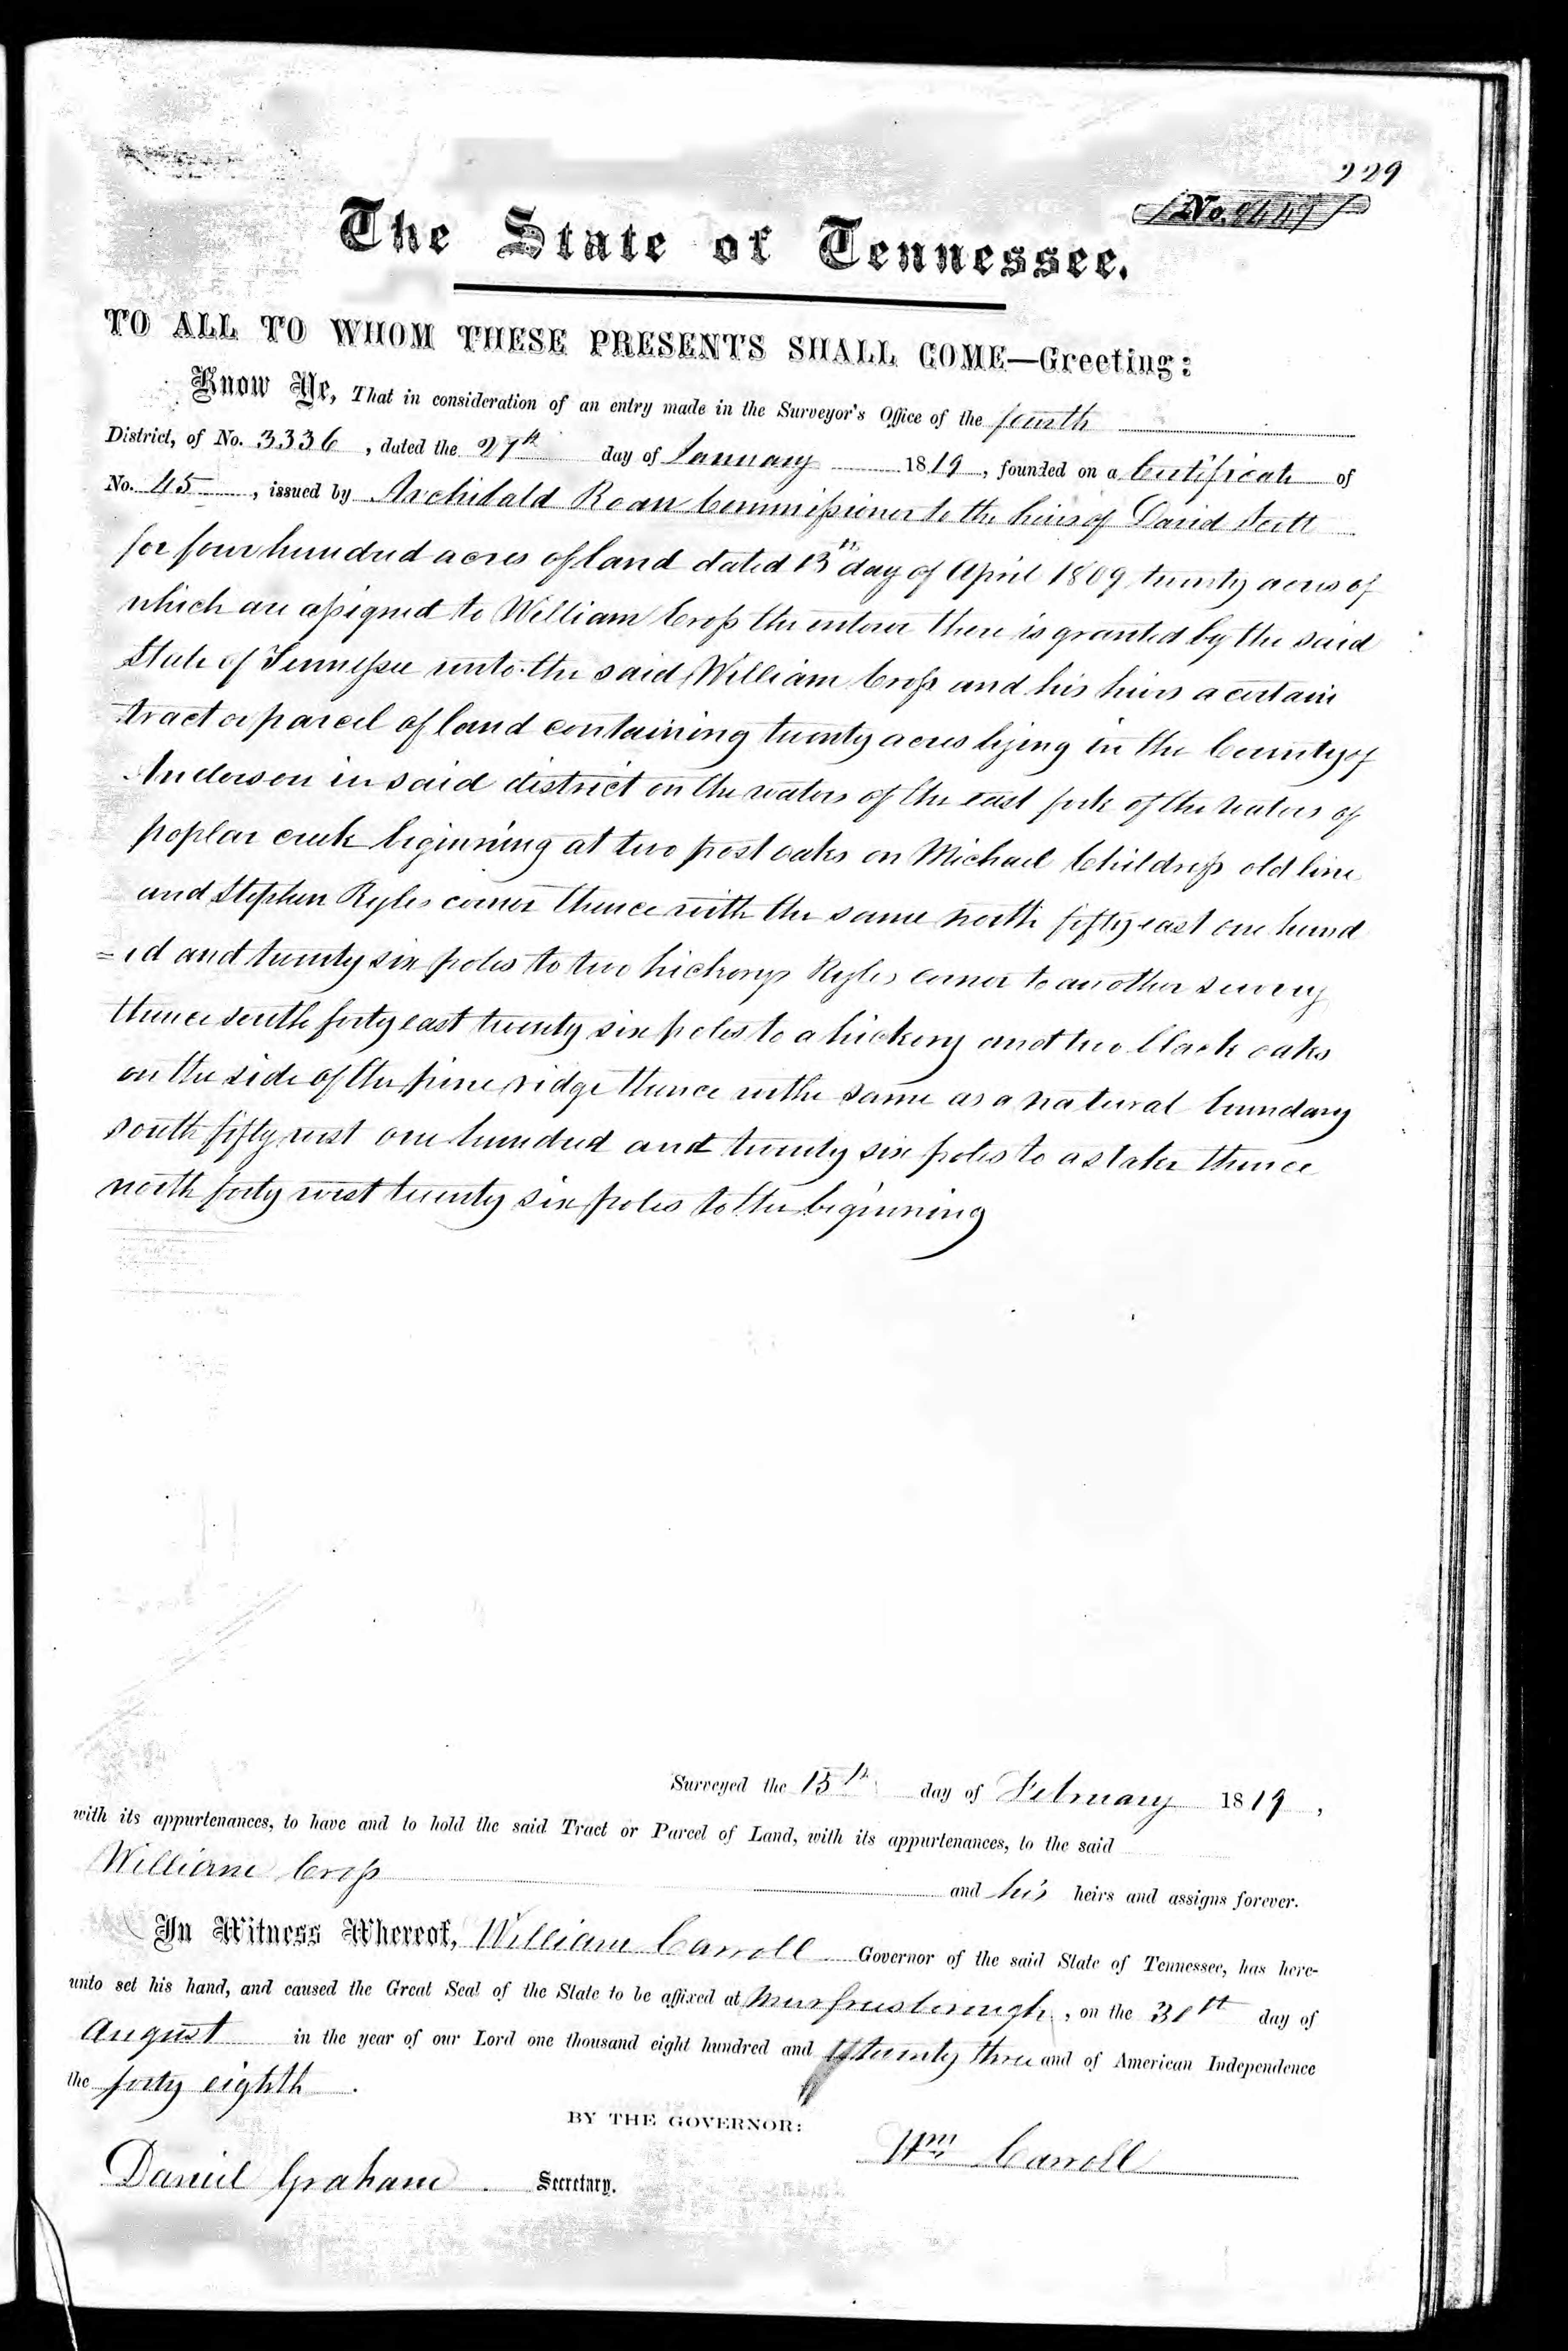 229
No.
The State of Tennessee.
TO ALL TO WHOM THESE PRESENTS SHALL COME—Greeting:
Know Ye, That in consideration of an entry made in the Surveyor's Office of the fourth
District, of No. 3336, dated the 27th day of January 1819, founded on a Certificate of
No. 45, issued by Archibald Roan Commissioner to the heirs of David Scott
for four hundred acres of land dated 13th day of April 1809 twenty acres of
which are assigned to William Cross the enterer there is granted by the said
State of Tennessee unto the said William Cross and his heirs a certain
tract or parcel of land containing twenty acres lying in the County of
Anderson in said district on the waters of the east fork of the waters of
poplar creek beginning at two post oaks on Michael Childress old line
and Stephen Ryles corner thence with the same north fifty east one hund
=ed and twenty six poles to two hickorys Ryles corner to another survey
thence south forty east twenty six poles to a hickory and two black oaks
on the side of the pine ridge thence withe same as a natural boundary
south fifty west one hundred and twenty six poles to a stake thence
north forty west twenty six poles to the beginning
Surveyed the 15th day of February 1819,
with its appurtenances, to have and to hold the said Tract or Parcel of Land, with its appurtenances, to the said
William Cross and his heirs and assigns forever.
In Witness Whereof, William Carroll Governor of the said State of Tennessee, has here-
unto set his hand, and caused the Great Seal of the State to be affixed at Murfreesborough, on the 30th day of
August in the year of our Lord one thousand eight hundred and twenty three and of American Independence
the forty eighth.
BY THE GOVERNOR:
Wm Carroll
Daniel Graham Secretary.